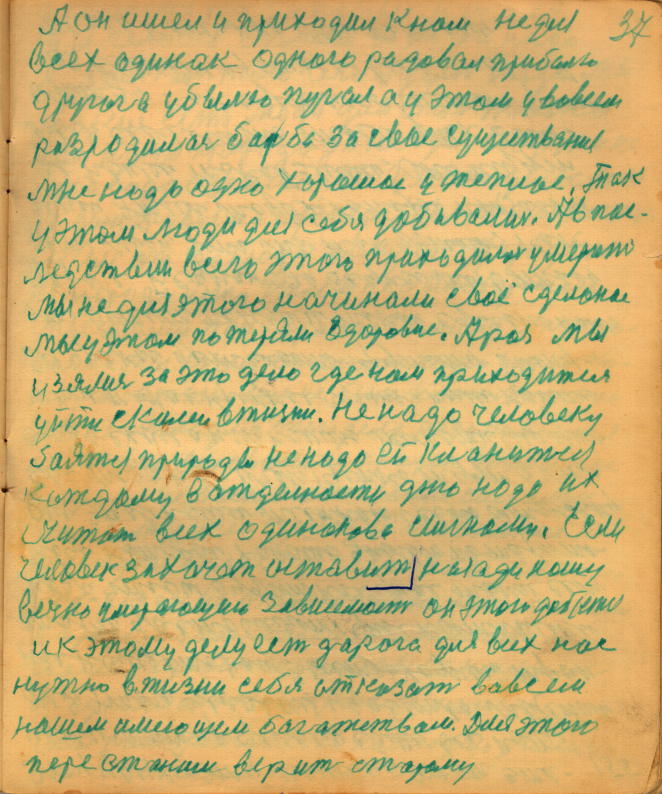 37
А он ишел и приходил к нам не для
всех одинак одного радовал прибылю
другога убылю пугал а у этом у вовсем
разродилася барба за свае существание
мне надо одно харошае и теплае. Так
у этом люди для себя добивалися. А в пос-
ледствии всего этого приходилося умерать
мы не для этого начинали своё сделоное
мы у этом потеряли здоровие. А раз мы
узялися за это дело где нам приходится
уйти с колеи в тизни. Не надо человеку
баятся природы не надо ей кланится
каждому в атделности надо их
считат всех одинакова. Если
человек захочат оставит назади нашу
вечно умерающую зависемост он этого добется
и к этому делу ест дарога для всех нас
нужно в жизни себя атказат вавсем
нашем имеющем багатствам. Для этого
перестаним верит старому